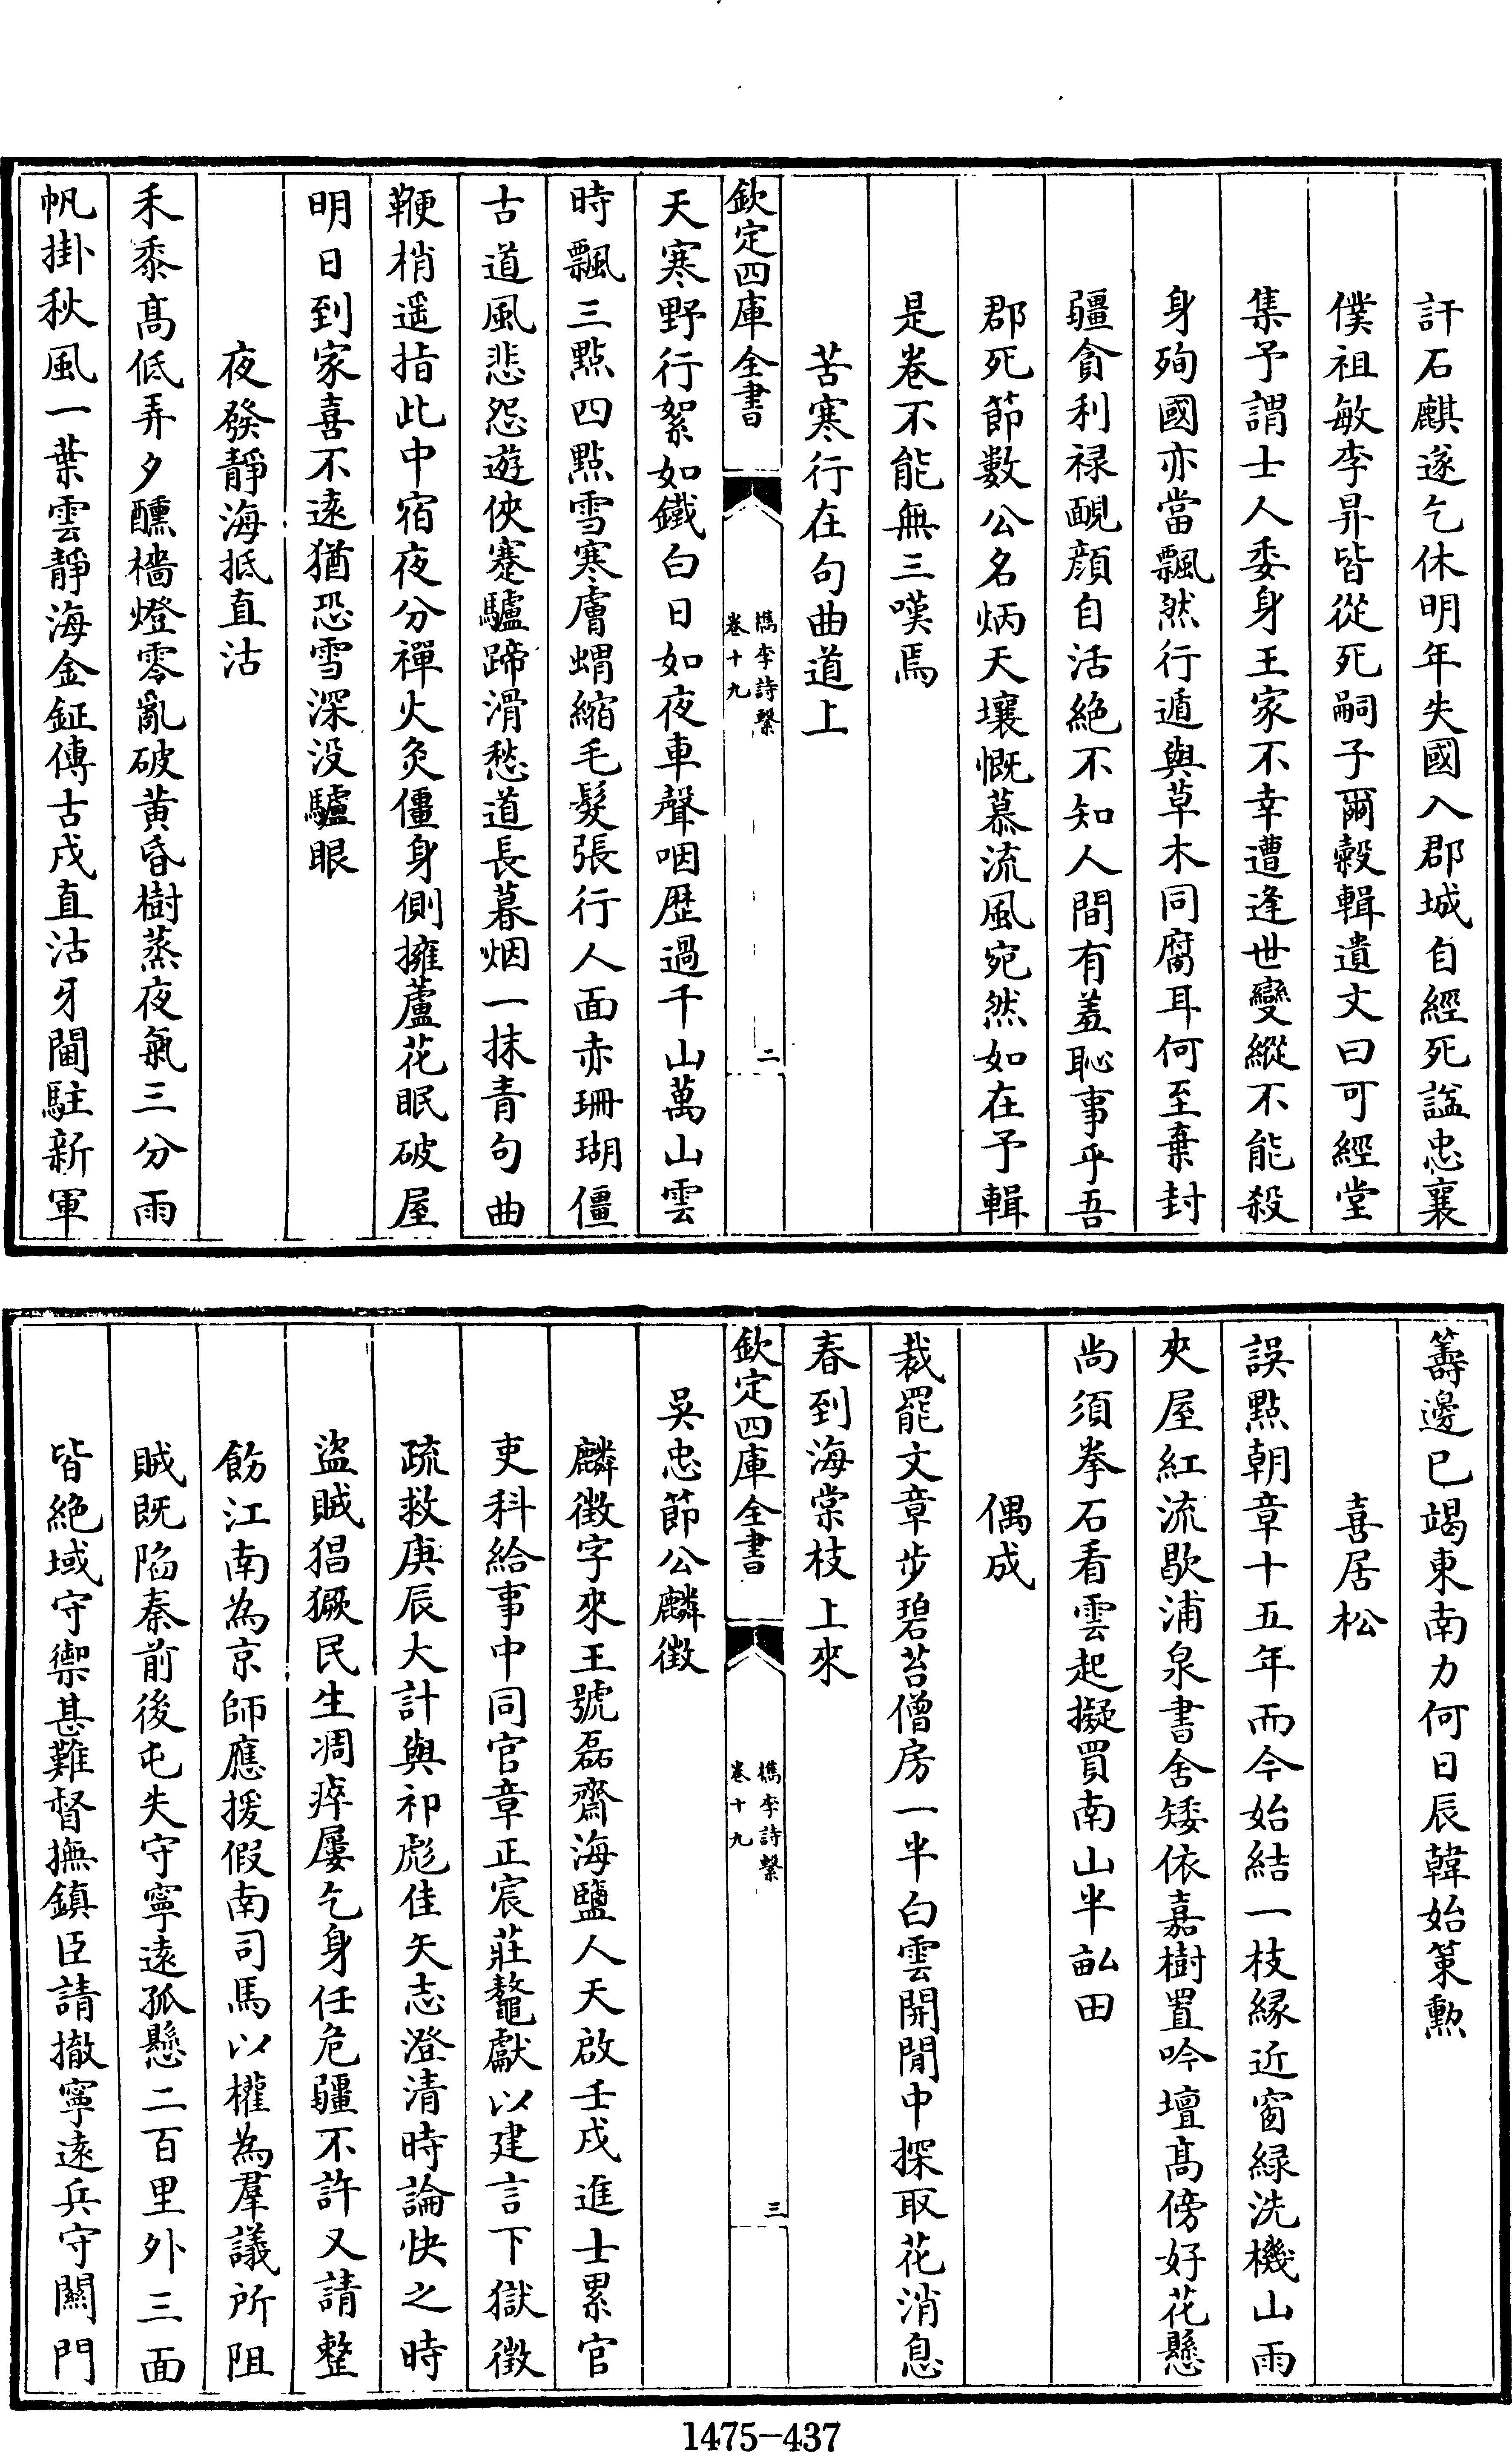 訐石麒遂乞休明年失國入郡城自經死諡忠襄
僕祖敏李昇皆從死嗣子爾榖輯遺文曰可經堂
集予謂士人委身王家不幸遭逢世變縱不能殺
身殉國亦當飄然行遁與草木同腐耳何至棄封
疆貪利禄靦顔自活絶不知人間有羞恥事乎吾
郡死節數公名炳天壤慨慕流風宛然如在予輯
是卷不能無三嘆焉
苦寒行在句曲道上
欽定四庫全書
檇李詩繫
卷十九
二
天寒野行絮如鐵白日如夜車聲咽歴過千山萬山雲
時飄三點四點雪寒膚蝟縮毛髮張行人面赤珊瑚僵
古道風悲怨遊俠蹇驢蹄滑愁道長暮烟一抹青句曲
鞭梢遥指此中宿夜分禪火灸僵身側擁蘆花眠破屋
明日到家喜不遠猶恐雪深没驢眼
夜發靜海抵直沽
禾黍髙低弄夕醺檣燈零亂破黄昏樹蒸夜氣三分雨
帆掛秋風一葉雲靜海金鉦傳古戍直沽牙閫駐新軍
籌邊已竭東南力何日辰韓始策勲
喜居松
誤點朝章十五年而今始結一枝縁近窗緑洗機山雨
夾屋紅流歇浦泉書舍矮依嘉樹置吟壇髙傍好花懸
尚須拳石看雲起擬買南山半畝田
偶成
裁罷文章步碧苔僧房一半白雲開閒中探取花消息
春到海棠枝上來
欽定四庫全書
檇李詩繫
卷十九
三
吳忠節公麟徴
麟徴字來王號磊齋海鹽人天啟壬戌進士累官
吏科給事中同官章正宸莊鼇獻以建言下獄徴
疏救庚辰大計與祁彪佳矢志澄清時論快之時
盜賊猖獗民生凋瘁屢乞身任危疆不許又請整
飭江南為京師應援假南司馬以權為羣議所阻
賊既陷秦前後屯失守寧遠孤懸二百里外三面
皆絶域守禦甚難督撫鎮臣請撤寧遠兵守關門
1475-437